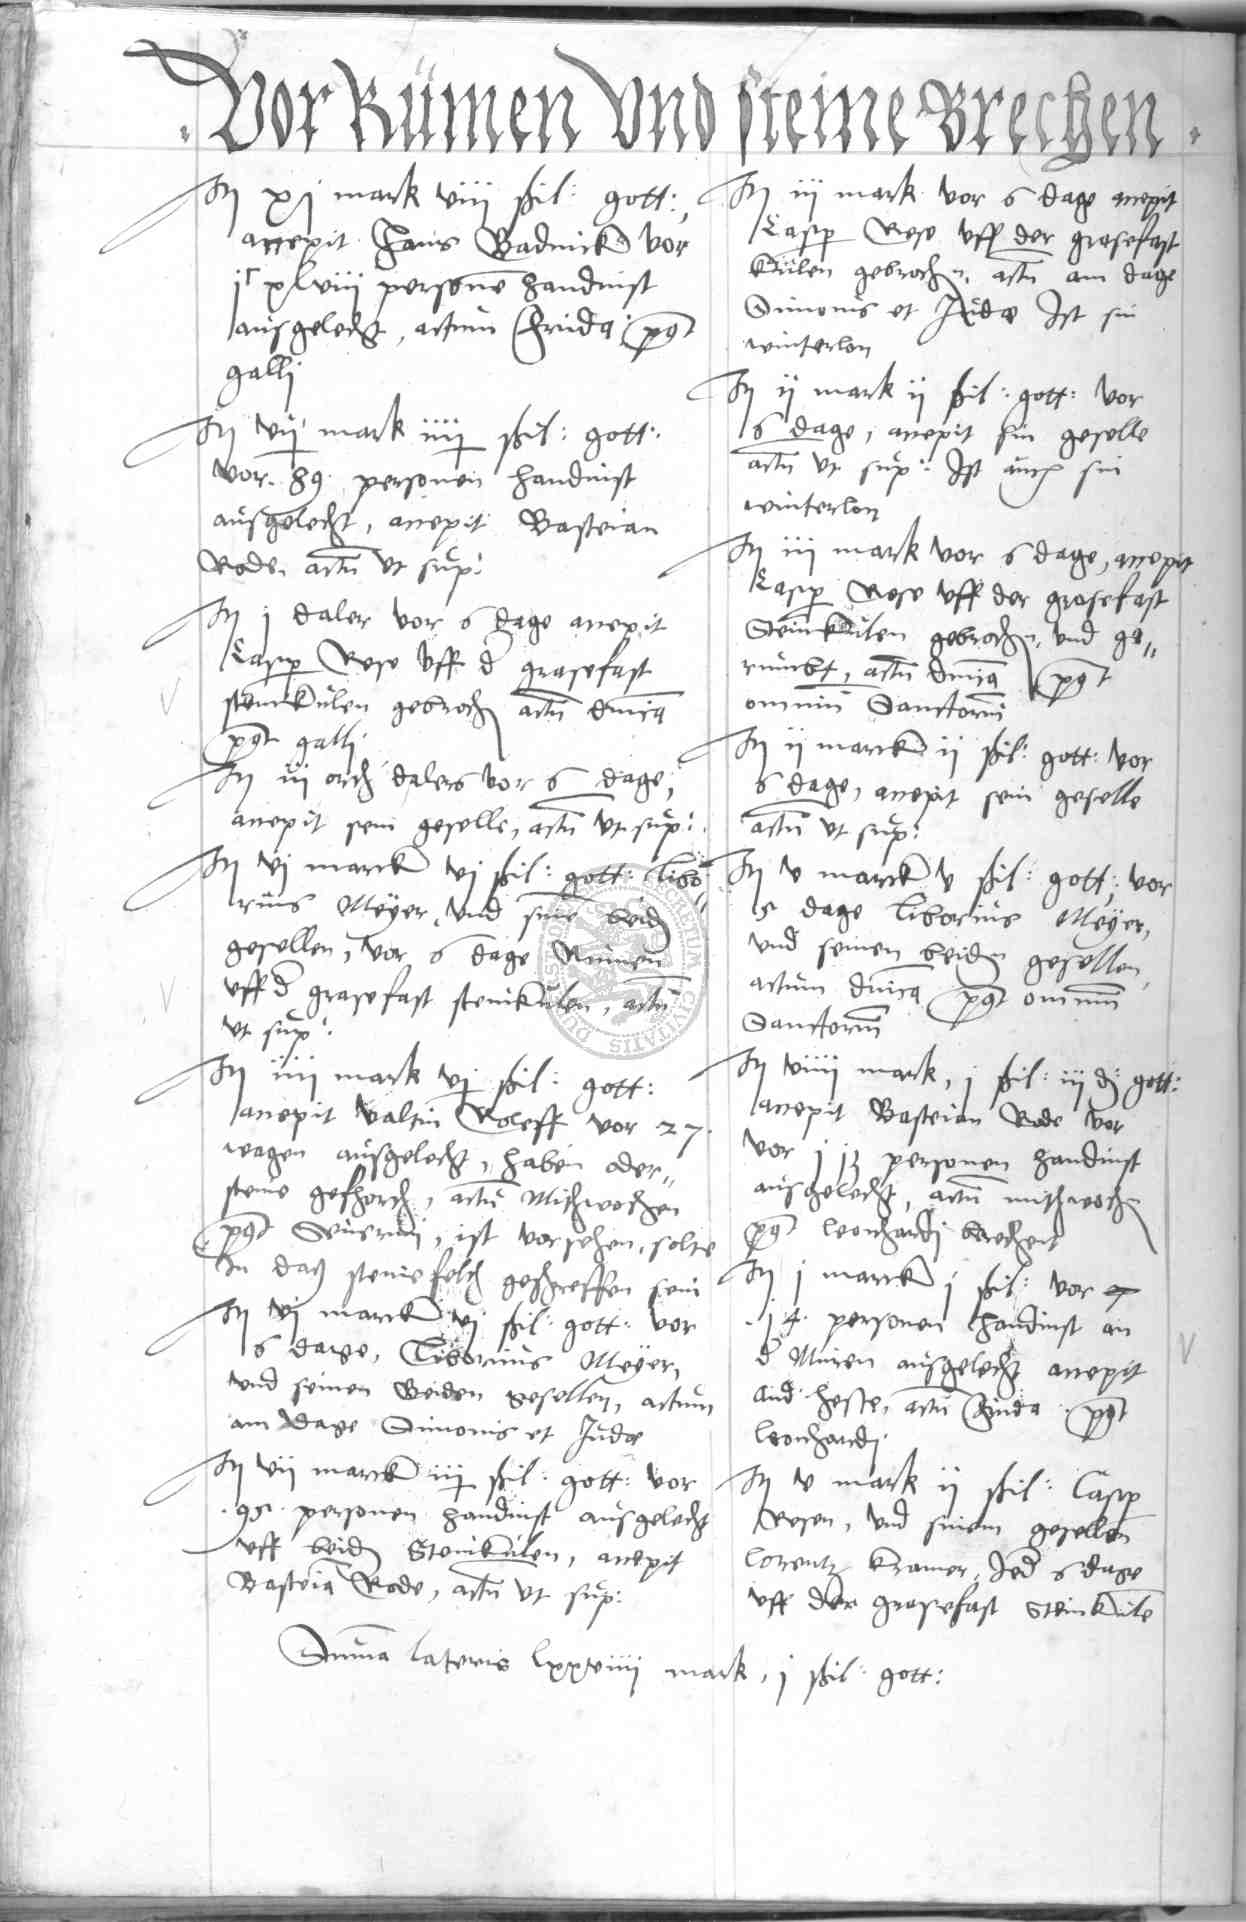 Vor Rümen Und steine Brechen
It xj mark viij ßil: gott:,
accepit Hans Badenick vor
jc xlviij persone handinst
ausgelecht, actum frida post
galli
It vij mark iiij ßil: gott:
vor 89 personen handinst
ausgelecht, accepit Basteian
Rode, actu ut sup:
It j daler vor 6 dage accepit
Casper Rese uff d grasefast
steinkulen gebroch actu dnica
post galli
It iij orth dalers vor 6 dage,
accepit sein geselle, actu ut sup:
It vj marck vj ßil: gott: Libo„
rius Meyer, und sine beid
gesellen, vor 6 dage Rumen
uff d grasefast steinkulen, actu
ut sup:
It iiij mark vj ßil: gott:
accepit Valtin Roleff vor 27
wagen ausgelecht, haben oder„
steine, actu Mithwochen
post Severini, ist vorsehen, solte
In das steine geschreffen sein
It vj marck vj ßil: gott: vor
6 dage, Liborius Meyer,
und seinen Beiden gesellen, actum
am dage Simonis et Judæ
It vij marck iiij ßil: gott: vor
95 personen handinst ausgelecht
uff beid Steinkulen, accepit
Basteia Rode, actu ut sup:
It iij mark vor 6 dage accepit
Casper Rese uff der grasefast
kulen gebroch, actu am dage
Simonis et Judæ Ist sin
winterlon
It ij mark ij ßil: gott: vor
6 dage, accepit sin geselle
actu ut sup: Ist auch sin
winterlon
It iij mark vor 6 dage, accepit
Casper Rese uff der grasefast
Steinkulen gebroch, und ge„
rumbt, actu dnica post
omniu Sanctoru
It ij marck ij ßil: gott: vor
6 dage, accepit sein geselle
actu ut sup:
It v marck v ßil: gott: vor
5 dage Liborius Meyer,
und seinen beiden gesellen,
actum dnica post omniu
Sanctoru
It viiij mark, j ßil: iij d: gott:
accepit Basteian Rode vor
vor personen handinst
ausgelecht, actu mithwoch
post Leonhardi
It j marck j ßil: vor
14 personen handinst an
d Muren ausgelecht accepit
And: Heste, actu frida post
Leonhardi
It v mark ij ßil: Casp
Resen, und sinem gesellen
Lorentz Kramer, Jed 6 dage
uff der grasefast Steinkule
Suma lateris lxxviiij mark, j ßil: gott: